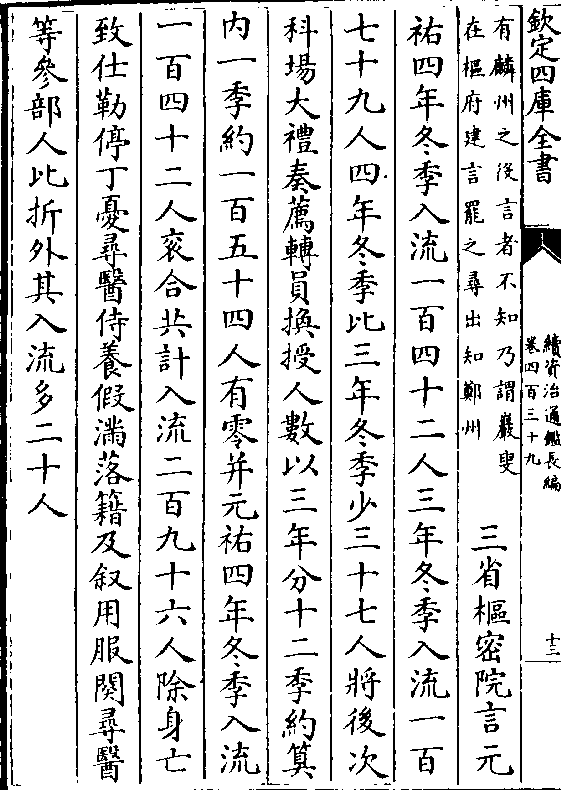 欽定四庫全書
續資治通鑑長編
卷四百三十九
十三
有麟州之役言者不知乃謂巖叟
在樞府建言罷之尋出知鄭州
三省樞密院言元
祐四年冬季入流一百四十二人三年冬季入流一百
七十九人四年冬季比三年冬季少三十七人將後次
科場大禮奏薦轉員換授人數以三年分十二季約算
内一季約一百五十四人有零并元祐四年冬季入流
一百四十二人衮合共計入流二百九十六人除身亡
致仕勒停丁憂尋醫侍養假滿落籍及叙用服闋尋醫
等參部人比折外其入流多二十人